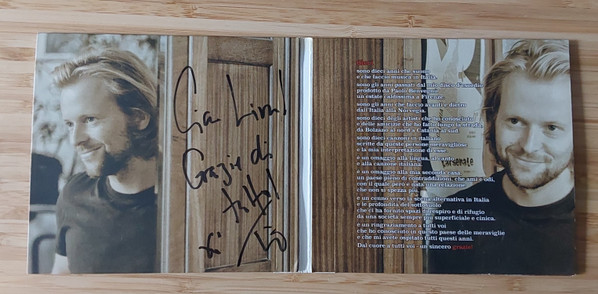 Grazie di
tutto!
Ciao!
sono dieci anni che suono
e che faccio musica in Italia.
sono gli anni passati dal mio disco d'esordio
prodotto da Paolo Benvegnù
un estate caldissima a Firenze.
sono gli anni che faccio avanti e dietro
dall'Italia alla Norvegia.
sono dieci degli artisti che
e delle amicizie che ho fatto lungo la strada
da Bolzano al nord a Catania al sud
sono dieci canzoni in italiano
scritte da queste persone meravigliose
e la mia interpretazione di esse.
e un omaggio alla lingua, al canto
e alla canzone italiana.
e un omaggio alla mia seconda casa
un paese pieno di contraddizioni, che ami e odi,
con il quale però è nata una relazione
che non si spezza più.
e un cenno verso la scena alternativa in Italia
e le profondità del sottosuolo
che ci ha fornito spazi di respiro e di rifugio
da una società sempre più superficiale e cinica.
e un ringraziamento a tutti voi
che ho conosciuto in questo paese delle meraviglie
e che mi avete ospitato tutti questi anni.
Dal cuore a tutti voi - un sincero grazie!